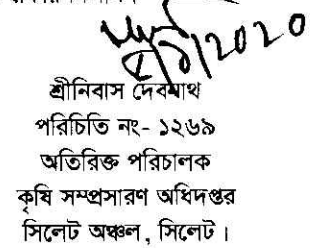 শ্রীনিবাস দেবনাথ
পরিচিতি নং- ১২৬৯
অতিরিক্ত পরিচালক
কৃষি সম্প্রসারণ অধিদপ্তর
সিলেট অঞ্চল, সিলেট।